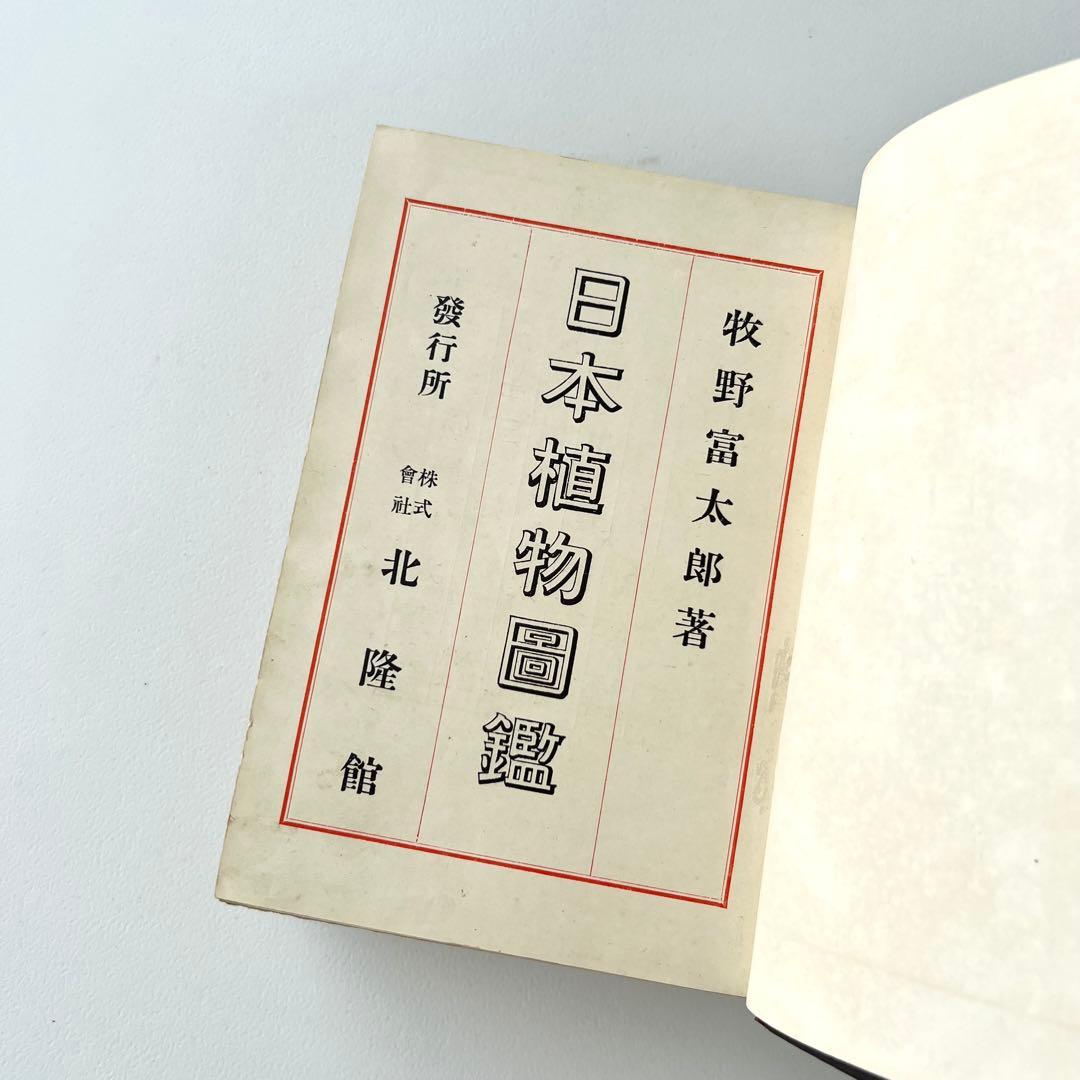 牧野富太郎著
日本植物圖鑑
發行所
株式
會社
北隆館